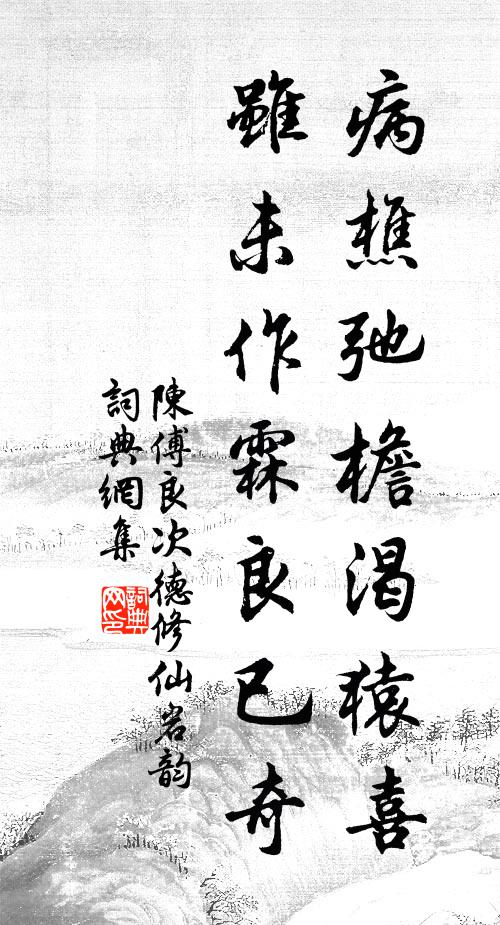 病樵弛檐渴猿喜
雖未作霖良已奇
陳傅良次德修仙岩韵
詞典網集
詞典網印